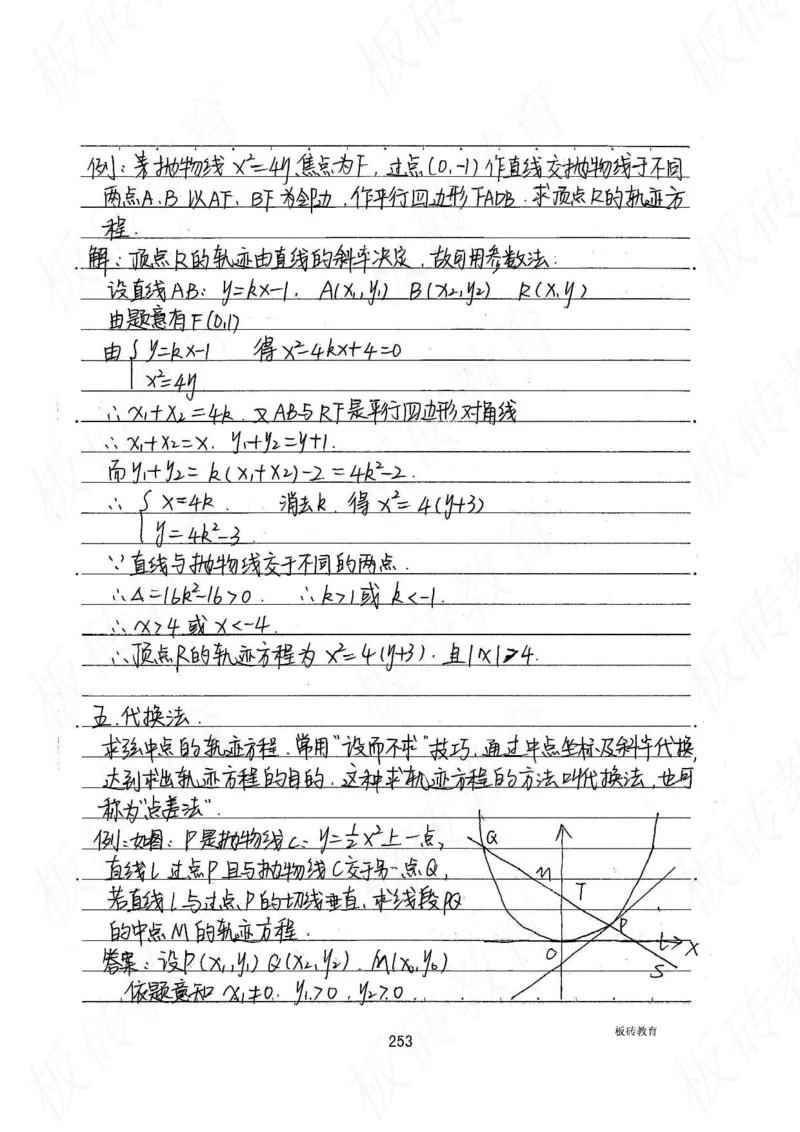 例:若抛物线 x²=4y 焦点为F,过点(0,-1)作直线交抛物线于不同
两点A、B 以AF、BF为邻边,作平行四边形FADB.求顶点R的轨迹方
程.
解:顶点R的轨迹由直线的斜率决定,故可用参数法.
设直线AB: y=kx-1. A(x₁,y₁) B(x₂,y₂) R(x,y)
由题意有F(0,1)
由{y=kx-1 得x²-4kx+4=0
x²=4y
∴x₁+x₂=4k. 又AB与RF是平行四边形对角线
∴x₁+x₂=x. y₁+y₂=y+1.
而y₁+y₂=k(x₁+x₂)-2=4k²-2.
∴{x=4k. 消去k.得x²=4(y+3)
y=4k²-3
∵直线与抛物线交于不同的两点.
∴Δ=16k²-16>0. ∴k>1或k<-1.
∴x>4或x<-4.
∴顶点R的轨迹方程为x²=4(y+3).且|x|>4.
五.代换法.
求弦中点的轨迹方程.常用"设而不求"技巧.通过中点坐标及斜率代换,
达到求出轨迹方程的目的.这种求轨迹方程的方法叫代换法,也可
称为"点差法".
例:如图:P是抛物线C:y=½x²上一点,
直线L过点P且与抛物线C交于另一点Q,
若直线l与过点P的切线垂直,求线段PQ
的中点M的轨迹方程.
答案:设P(x₁,y₁) Q(x₂,y₂).M(x₀,y₀)
依题意知x₁≠0. y₁>0,y₂>0.
Q
M
T
P
O
L
X
S
253
板砖教育
板砖教育